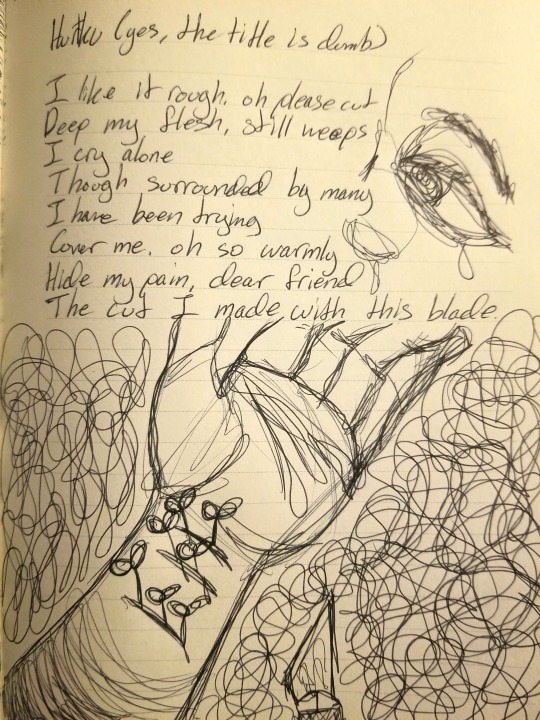 (yes, the title is dumb)
I like it rough, oh please cut
Deep my flesh, still weeps
I cry alone
Though surrounded by many
I have been trying
Cover me, oh so warmly
Hide my pain, dear friend
The cut I made with this blade.